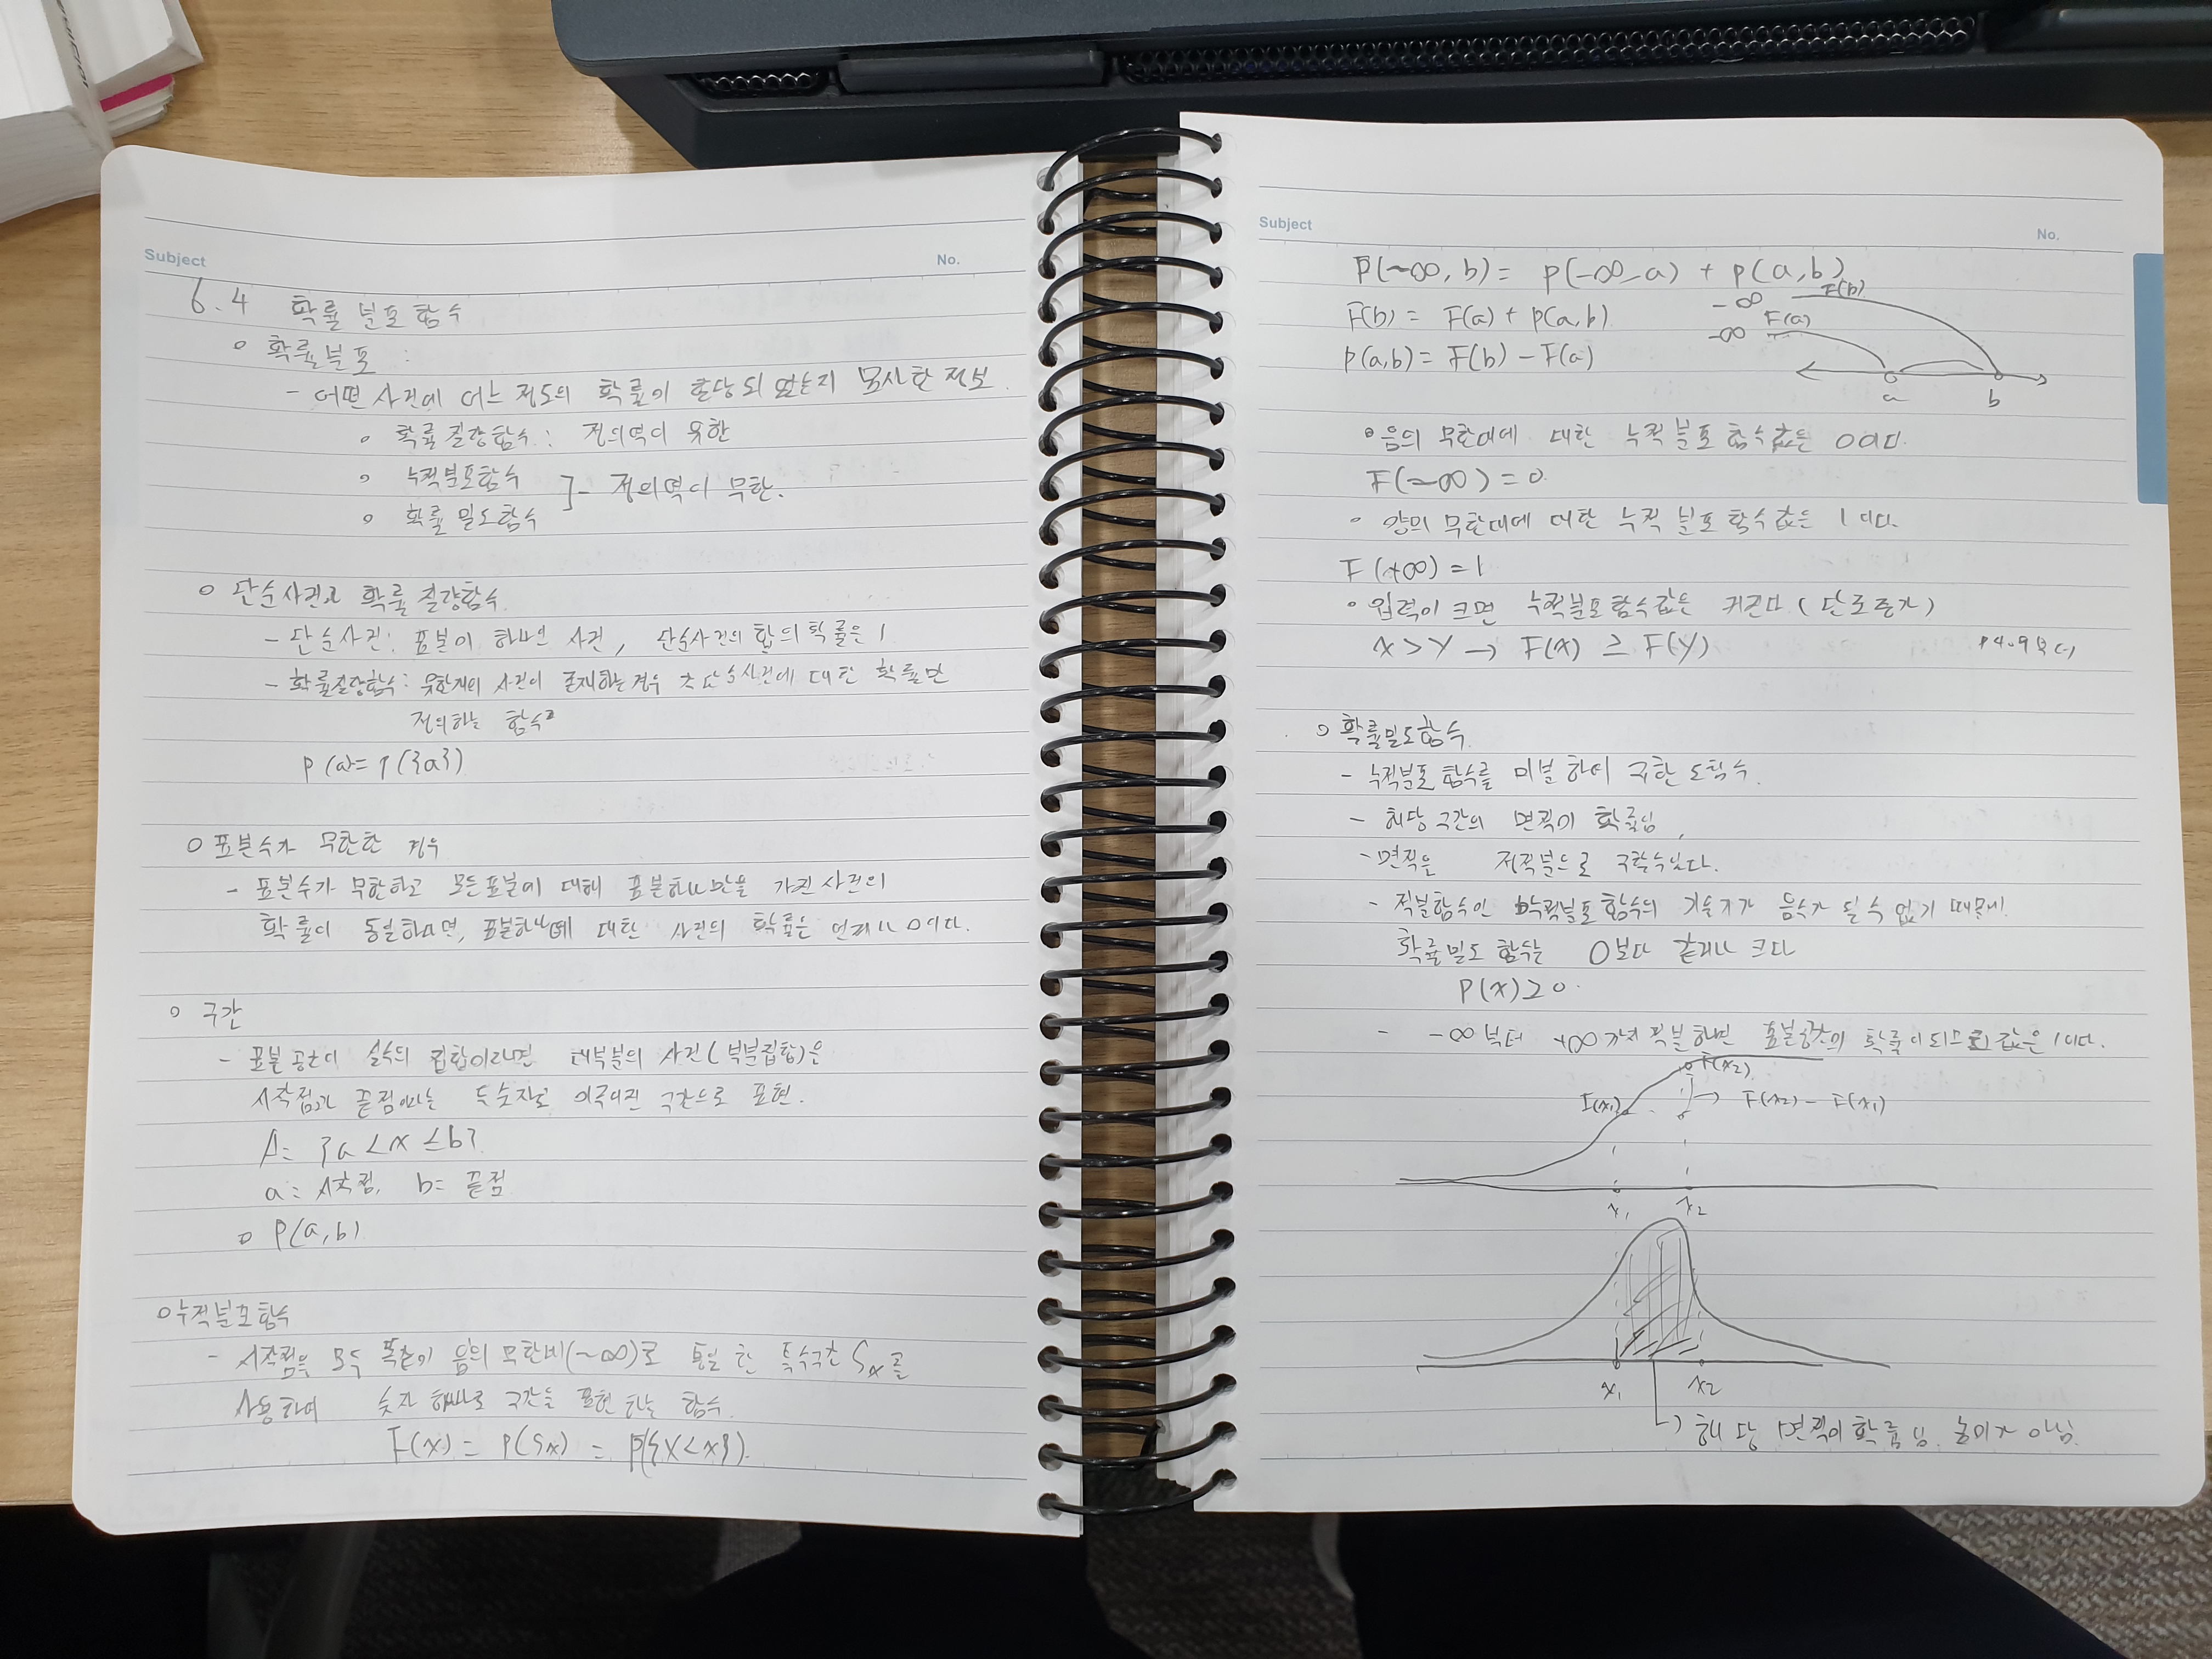 Subject No.
6.4 확률분포함수
확률분포 :
- 어떤 사건에 어느 정도의 확률이 할당되었는지 묘사한 정보.
확률질량함수 : 정의역이 유한
누적분포함수
확률밀도함수
]- 정의역이 무한.
단순사건과 확률질량함수
- 단순사건: 표본이 하나인 사건, 단순사건의 합의 확률은 1
- 확률질량함수: 유한개의 사건이 존재하는 경우 각 단순사건에 대한 확률만
정의하는 함수
P(a)=P({a})
표본수가 무한한 경우
- 표본수가 무한하고 모든 표본에 대해 표본하나만을 가진 사건의
확률이 동일하다면, 표본하나에 대한 사건의 확률은 언제나 0이다.
구간
- 표본공간이 실수의 집합이라면 대부분의 사건(부분집합)은
시작점과 끝점이라는 두 숫자로 이루어진 구간으로 표현.
A= {a < x ≤ b}
a= 시작점, b= 끝점
P(a,b)
누적분포함수
- 시작점을 모두 똑같이 음의 무한대(-∞)로 통일한 특수구간 Sx를
사용하여 숫자 하나로 구간을 표현하는 함수.
F(x) = P(Sx) = P({X<x}).
Subject No.
P(-∞, b) = P(-∞, a) + P(a,b)
F(b) = F(a) + P(a,b)
P(a,b) = F(b) - F(a)
-∞ F(b)
-∞ F(a)
a b
음의 무한대에 대한 누적분포함수값은 0이다.
F(-∞) = 0.
양의 무한대에 대한 누적분포함수값은 1이다.
F(+∞) = 1
입력이 크면 누적분포함수값은 커진다 (단조증가)
x > y → F(x) ≥ F(y)
확률밀도함수.
- 누적분포함수를 미분하여 구한 도함수.
- 해당 구간의 면적이 확률임.
- 면적은 정적분으로 구할수있다.
- 적분함수인 누적분포함수의 기울기가 음수가 될 수 없기 때문에.
확률밀도함수는 0보다 같거나 크다
P(x) ≥ 0.
- -∞부터 +∞까지 적분하면 표본공간의 확률이 되므로 값은 1이다.
F(x2)
F(x1) → F(x2) - F(x1)
x1 x2
x1 x2
→ 해당 면적이 확률임. 높이가 아님.